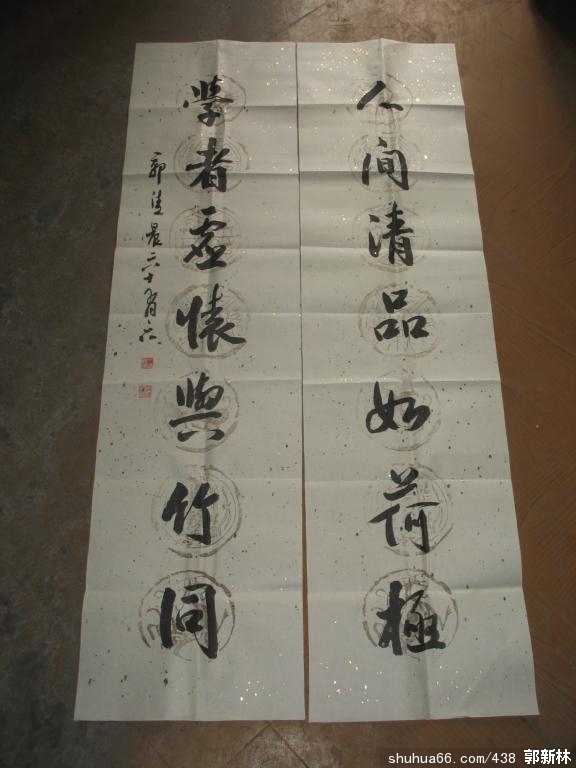 人间清品如荷極
學者虚懐與竹同
郭
晨六十有六
shuhua66.com/438 郭新林